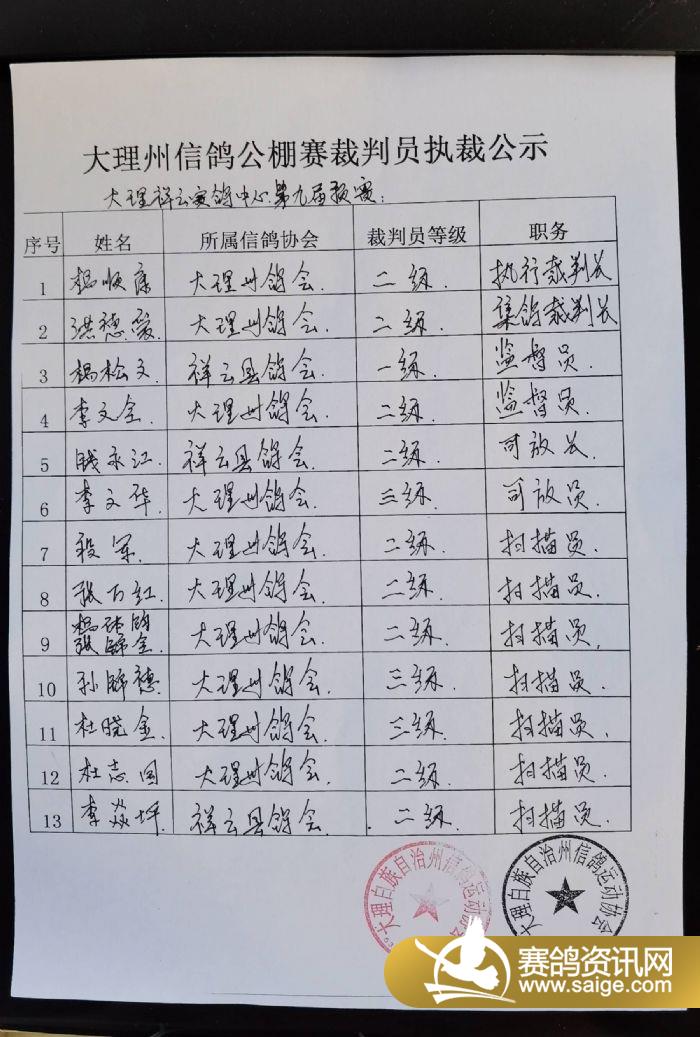 大理州信鸽公棚赛裁判员执裁公示
大理祥云赛鸽中心第九届预赛：
序号 姓名 所属信鸽协会 裁判员等级 职务
1 杨顺康 大理州鸽会. 二级. 执行裁判长
2 洪德爱 大理州鸽会. 二级. 集鸽裁判长
3 杨松文 祥云县鸽会. 一级. 监督员.
4 李文全 大理州鸽会. 二级. 监督员.
5 钱永江. 祥云县鸽会. 二级. 司放长.
6 李文华 大理州鸽会. 三级. 司放员.
7 段军. 大理州鸽会. 二级. 扫描员.
8 张万红 大理州鸽会. 二级. 扫描员.
9 张锦金 大理州鸽会. 二级. 扫描员.
10 孙锦德 大理州鸽会. 三级. 扫描员.
11 杜晓金. 大理州鸽会. 三级. 扫描员.
12 杜志国 大理州鸽会. 二级. 扫描员.
13 李焱坪 祥云县鸽会. 二级. 扫描员.
大理白族自治州信鸽运动协会
大理白族自治州信鸽运动协会
赛鸽资讯网
www.saige.com